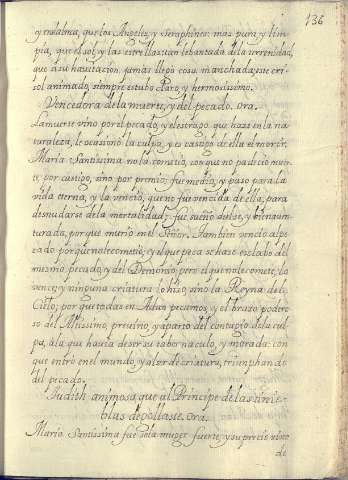 136
y en el alma, que los Angeles, y Seraphines: mas pura, y lim-
pia, que el sol, y las estrellas: tan lebantada de la terrenidad,
que a su habitacion jamas llegó cosa manchada; este cri-
sol animado siempre estubo Puro, y hermosissimo.
Vencedora de la muerte, y del pecado. ora.
La muerte vino por el pecado, y el estrago que haze en la na-
turaleza, le ocasionó la culpa, y es castigo de ella el morir;
Maria Santissima no la cometio, con que no padeció muer-
te, por castigo, sino por premio; fue medio, y paso para la
vida eterna, y la venció, que no fue vencida de ella; para
desnudarse de la mortalidad; fue sueño dulze, y bienaven-
turada, porque murió en el Señor. Tambien venció al pe-
cado porque no le cometió; y el que peca se haze esclabo del
mesmo pecado, y del Demonio: pero el que no le comete, lo
vence; y ninguna criatura lo hizo, sino la Reyna del
Cielo; por que todas en Adan pecamos, y el brazo podero
so del Altissimo, previno, y apartó del contagio de la cul-
pa, a la que havia de ser su tabernaculo, y morada: con
que entró en el mundo, y al ser de criatura, triumphando
del pecado.
Judith animosa que al Principe de las tinie-
blas degollaste. ora.
Maria Santissima fue sola muger fuerte, y su precio vino
de